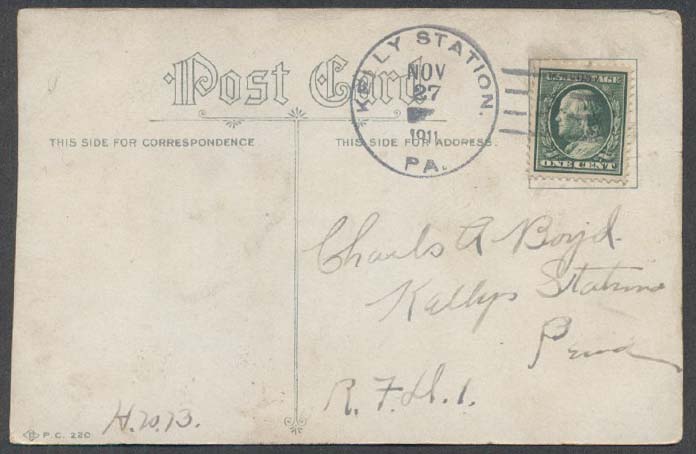 Post Card
THIS SIDE FOR CORRESPONDENCE
THIS SIDE FOR ADDRESS.
KELLY STATION.
NOV
27
1911
PA.
U.S. POSTAGE
ONE CENT
Charls A Boyd.
Kellys Station
Penna
R. F. D. 1.
H.W.B.
P.C. 220